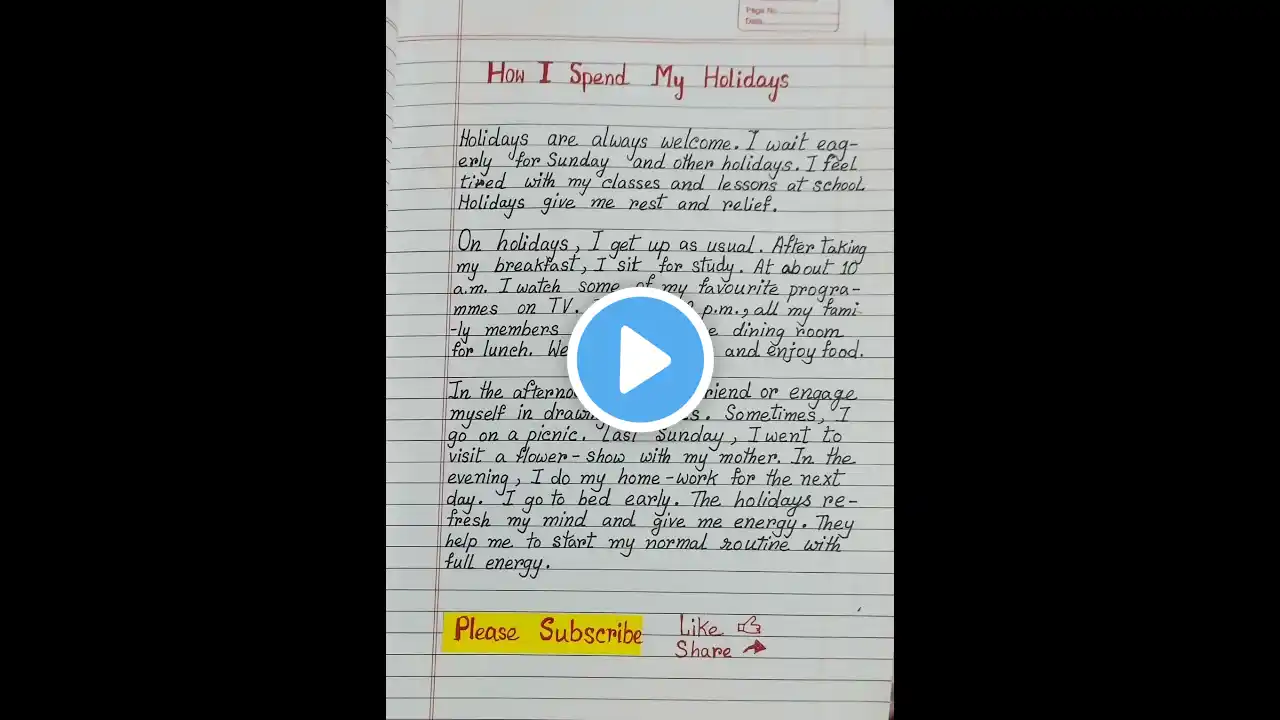 Page No.
Date
How I Spend My Holidays
Holidays are always welcome. I wait eag-
erly for Sunday and other holidays. I feel
tired with my classes and lessons at school.
Holidays give me rest and relief.
On holidays, I get up as usual. After taking
my breakfast, I sit for study. At about 10
a.m. I watch some of my favourite progra-
mmes on TV. p.m., all my fami-
-ly members dining room
for lunch. We and enjoy food.
In the or engage
myself in . Sometimes, I
go on a picnic. Last Sunday, I went to
visit a flower-show with my mother. In the
evening, I do my home-work for the next
day. I go to bed early. The holidays re-
fresh my mind and give me energy. They
help me to start my normal routine with
full energy.
Please Subscribe
Like
Share